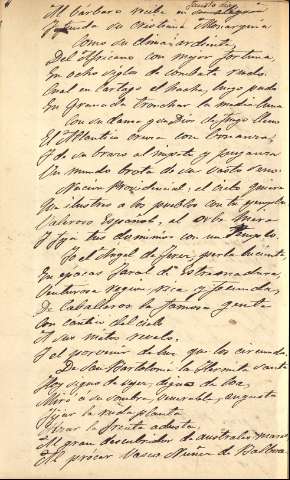 Al bárbaro vence en
fausto dia
Y funda su cristiana Monarquia
Como su clima ardiente,
Del Africano con mejor fortuna
En ocho siglos de combate rudo
Cual en Cartago el Hasta, luego pudo
En Granada tronchar la media luna
Con su llama
El Atlantico cruza con bonanza;
Y de su brazo al impetu y pujanza
Un mundo brota de su vasto seno
Nacion Providencial, el cielo quiera
Que ilustres a los pueblos con tu ejemplo
Valeroso Español, el Orbe
Y fija tus dominios con un Templo.
Es el Angel de Jerez, perla luciente
En Extremadura,
Venturosa region rica y fecunda,
De caballeros la famosa gente
Con cantico del cielo
A sus
Y el porvenir de luz que los circunda.
De San Bartolomé la Hermita santa
Hoy signo de digna de loa,
Miró a su sombra, venerable, augusta
Fijar la ruda planta
Alzar la frente adusta,
Al gran descubridor de australes mares
Al prócer Vasco Nuñez de Balboa